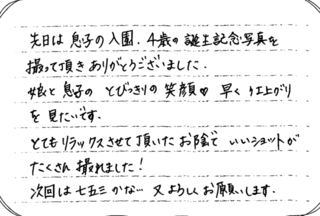 先日は息子の入園、4歳の誕生記念写真を
撮って頂きありがとうございました。
娘と息子の とびっきりの笑顔♥ 早く仕上がり
を見たいです。
とてもリラックスさせて頂いたお陰で いいショットが
たくさん撮れました！
次回は七五三かな… 又よろしくお願いします。